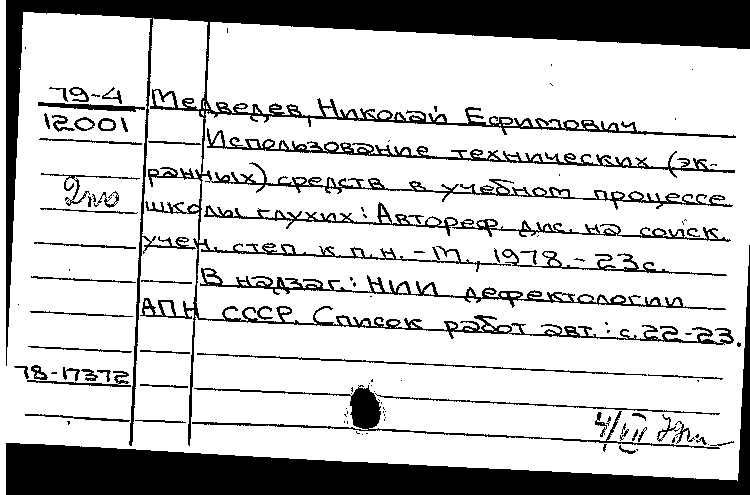 79-4 Медведев, Николай Ефимович.
12001 Использование технических (эк-
ранных) средств в учебном процессе
школы глухих: Автореф. дис. на соиск.
учен. степ. к. п. н. - М., 1978. - 23с.
В надзаг.: НИИ дефектологии
АПН СССР. Список работ авт.: с. 22-23.
78-17372
4/VII